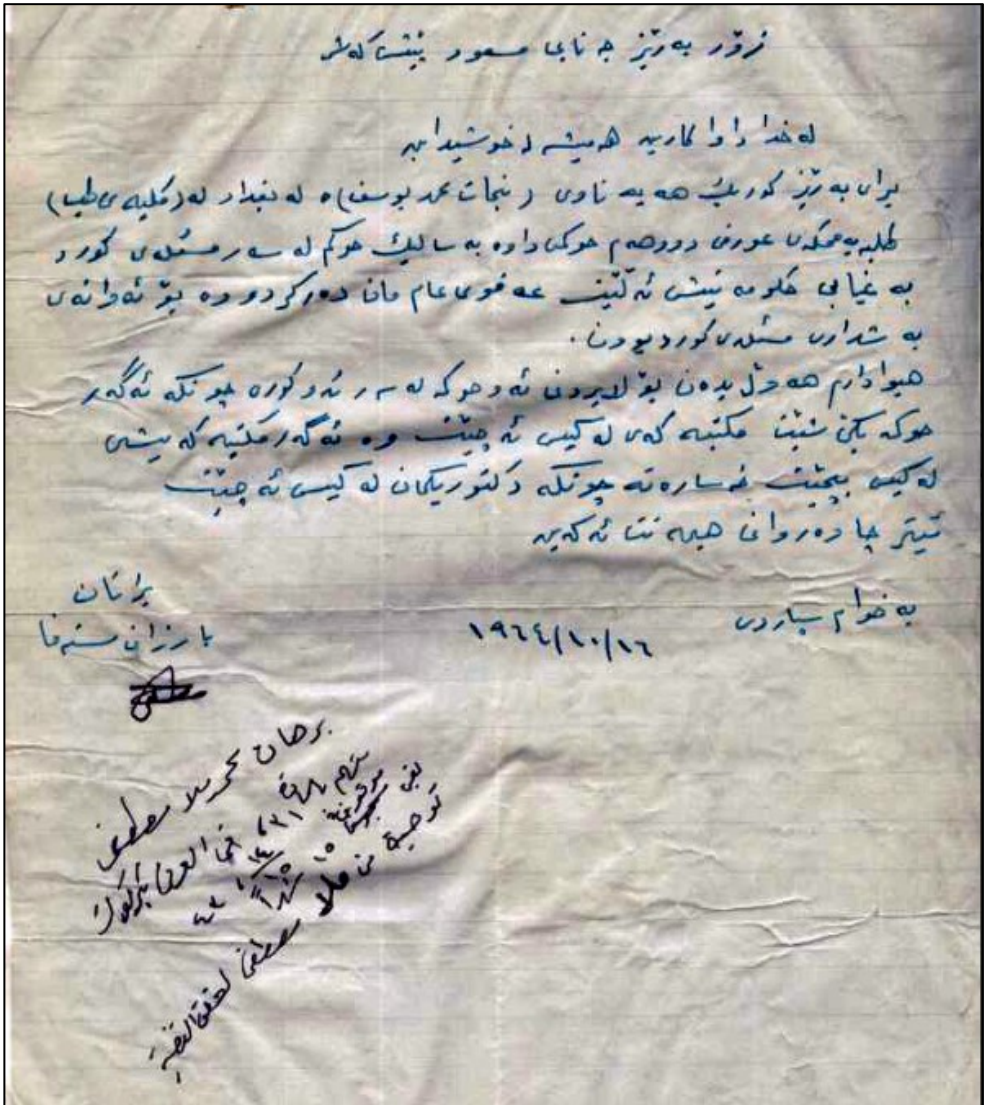 زۆر بەرێز جەنابی مسعود پێشکەش
لە خدا داوا کارین هەمیشە لە خوشیدا بن
برای بەرێز کوریك هەیە ناوی (نجات محمد یوسف)ە لە بغداد لە (کلیەی طب)
طلبەیە محکمەی عورفی دووهەم حوکمی داوە بە سالیك حوکم لە سەر مسئلەی کورد
بە غیابی حکومەتیش ئەلێت عەفوی عام مان دەرکردووە بۆ ئەوانەی
بەشداری مسئلەی کورد بوون.
هیوادارم هەوڵ بدەن بۆ لابردنی ئەو حوکمە لە سەر ئەو کورە چونکە ئەگەر
حوکمەکەی مکتبەکەی لە کیس ئەچێت وە ئەگەر مکتبەکەیشی
لە کیس بچێت خەسارەتە چونکە دکتوریکمان لە کیس ئەچێت
ئیتر چاوەروانی هیمەتتان ئەکەین
بە خوام سپاردن
١٩٦٤/١٠/١٦
براتان
بارزان مستەفا
برهان محمد ملا مصطفى
متهم وفق ٣١
في العرفي بكركوك
توصية من ملا مصطفى